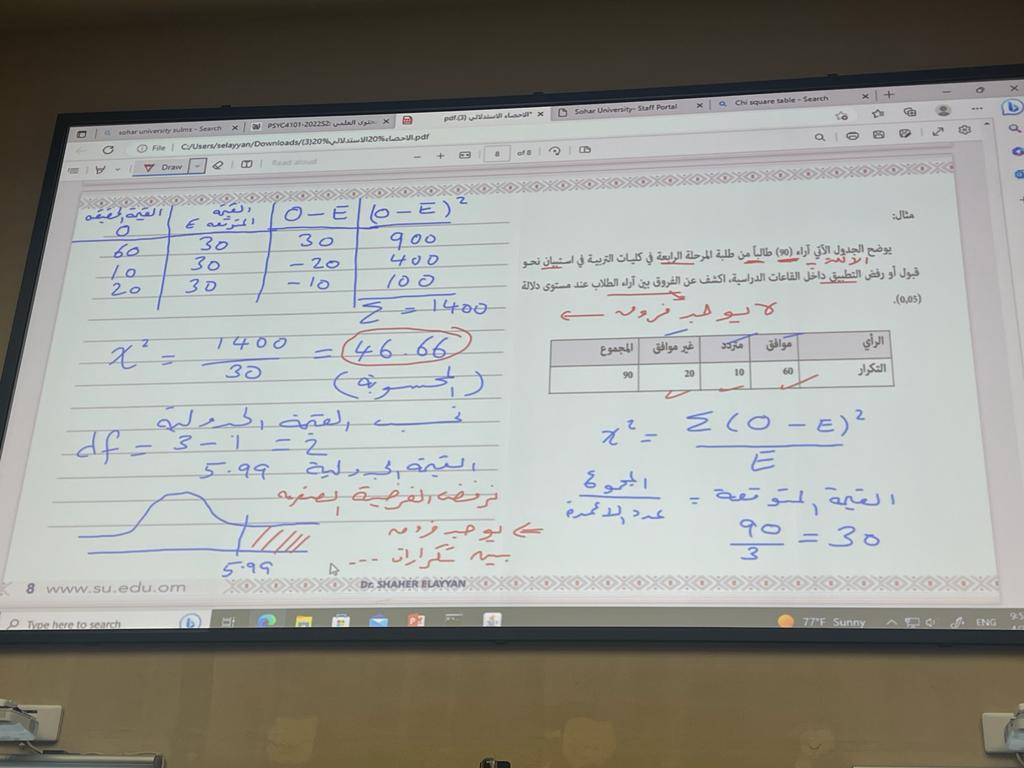 sohar university sulms - Search
PSYC4101-2022S2: محتوى العلمي
الاحصاء الاستدلالي (3).pdf*
Sohar University- Staff Portal
Chi square table - Search
File C:/Users/selayyan/Downloads/(3)20%الاستدلالي20%الاحصاء.pdf
Draw Read aloud 8 of 8
مثال:
يوضح الجدول الآتي آراء (90) طالباً من طلبة المرحلة الرابعة في كليات التربية في استبيان نحو
قبول أو رفض التطبيق داخل القاعات الدراسية، اكشف عن الفروق بين آراء الطلاب عند مستوى دلالة
(0,05).
لا يوجد فروق ←
الرأي موافق متردد غير موافق المجموع
التكرار 60 10 20 90
x² = Σ (O - E)² / E
القيمة المتوقعة = المجموع / عدد الاعمدة
90 / 3 = 30
القيمة الحقيقية O | القيمة المتوقعة E | O - E | (O - E)²
60 | 30 | 30 | 900
10 | 30 | -20 | 400
20 | 30 | -10 | 100
Σ = 1400
x² = 1400 / 30 = 46.66
(المحسوبة)
القيمة الجدولية
df = 3 - 1 = 2
القيمة الجدولية 5.99
نرفض الفرضية الصفرية
← يوجد فروق
بين تكرارات ...
5.99
8 www.su.edu.om
Dr. SHAHER ELAYYAN
Type here to search
77°F Sunny ENG